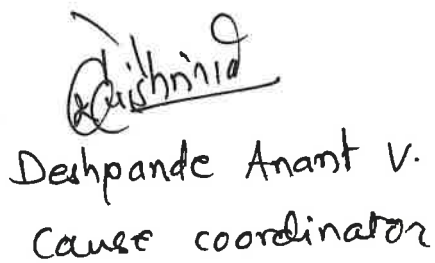 Deshpande Anant V.
Cause coordinator